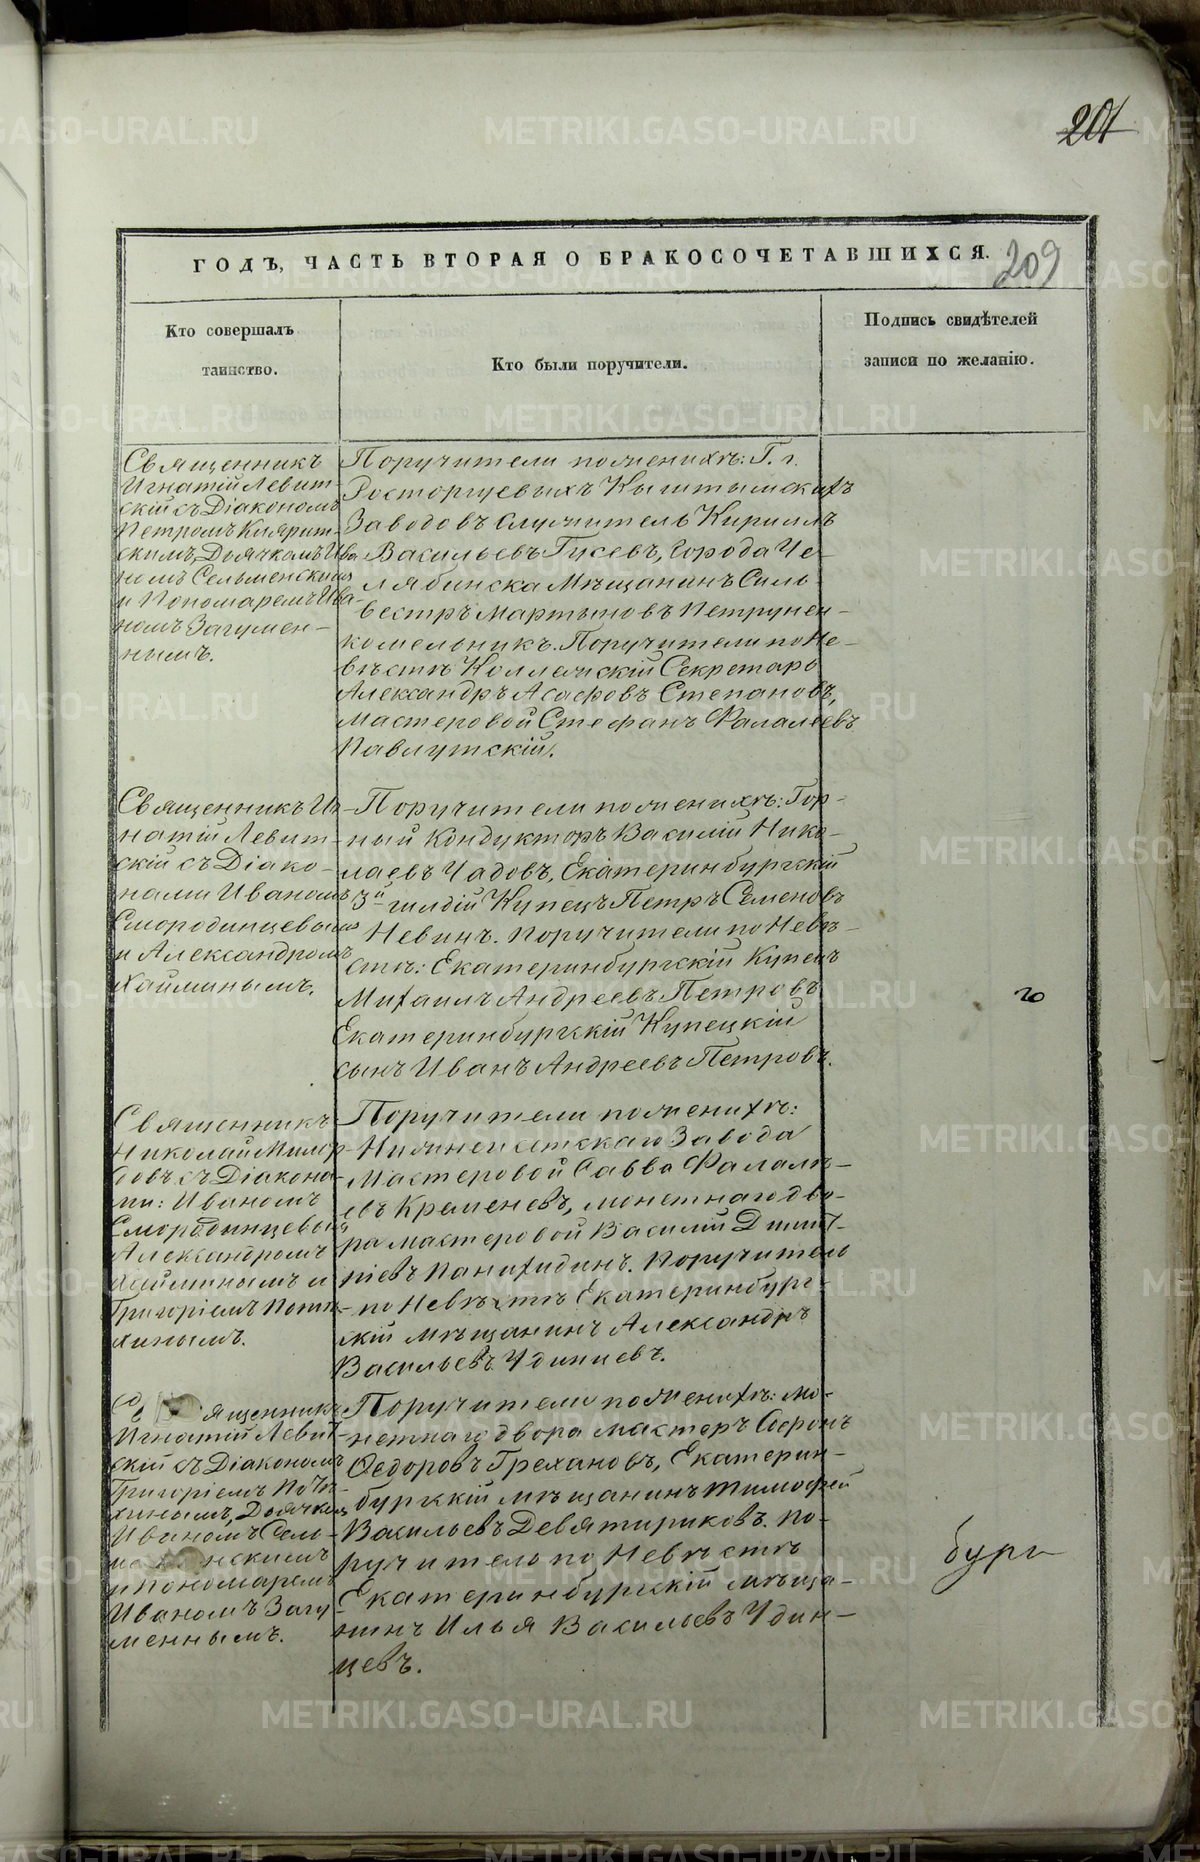 201
ГОДЪ, ЧАСТЬ ВТОРАЯ О БРАКОСОЧЕТАВШИХСЯ.
209
Кто совершалъ
таинство.
Кто были поручители.
Подпись свидѣтелей
записи по желанію.
Священникъ
Игнатій Левит-
скій съ Діакономъ
Петромъ
скимъ, Дьячкомъ Ива-
номъ
и Пономаремъ Ива-
номъ Загумен-
нымъ.
Поручители по женихѣ: Г. г.
Расторгуевыхъ Кыштымскихъ
Заводовъ Служитель Кириллъ
Васильевъ Гусевъ, города Че-
лябинска Мѣщанинъ Силь-
вестръ Мартыновъ Петрунен-
ко мельникъ. Поручители по Не-
вѣстѣ Коллежскій Секретарь
Александръ Асафовъ Степановъ,
Мастеровой Стефанъ Фалалеевъ
Павлутскій.
Священникъ Иг-
натій Левит-
скій съ Діако-
нами Иваномъ
Смородинцевымъ
и Александромъ
Хайминымъ.
Поручители по женихѣ: Гор-
ный Кондукторъ Василій Нико-
лаевъ Чадовъ, Екатеринбургскій
3й гильдіи Купецъ Петръ Семеновъ
Невинъ. Поручители по Невѣ-
стѣ: Екатеринбургскій Купецъ
Михаилъ Андреевъ Петровъ
Екатеринбургскій Купецкій
сынъ Иванъ Андреевъ Петровъ.
го
Священникъ
Николай
съ Діакона-
ми: Иваномъ
Смородинцевымъ
Александромъ
Хайминымъ и
Григоріемъ Попи-
хинымъ.
Поручители по женихѣ:
Нижнеисетскаго Завода
Мастеровой Савва Фалалѣ-
евъ Кременевъ, монетнаго дво-
ра мастеровой Василій Димит-
ріевъ Панихидинъ. Поручитель
по Невѣстѣ Екатеринбург-
скій мѣщанинъ Александръ
Васильевъ Удинцевъ.
ященникъ
Игнатій Левит-
скій съ Діакономъ
Григоріемъ
хинымъ, Дьячкомъ
Иваномъ
нскимъ
и Пономаремъ
Иваномъ Загу-
меннымъ.
Поручители по женихѣ: Мо-
нетнаго двора мастеръ Софронъ
Ѳедоровъ Грехановъ, Екатерин-
бургскій мѣщанинъ Тимофей
Васильевъ Девятириковъ. По-
ручитель по Невѣстѣ
Екатеринбургскій мѣща-
нинъ Илья Васильевъ Удин-
цевъ.
бург
METRIKI.GASO-URAL.RU